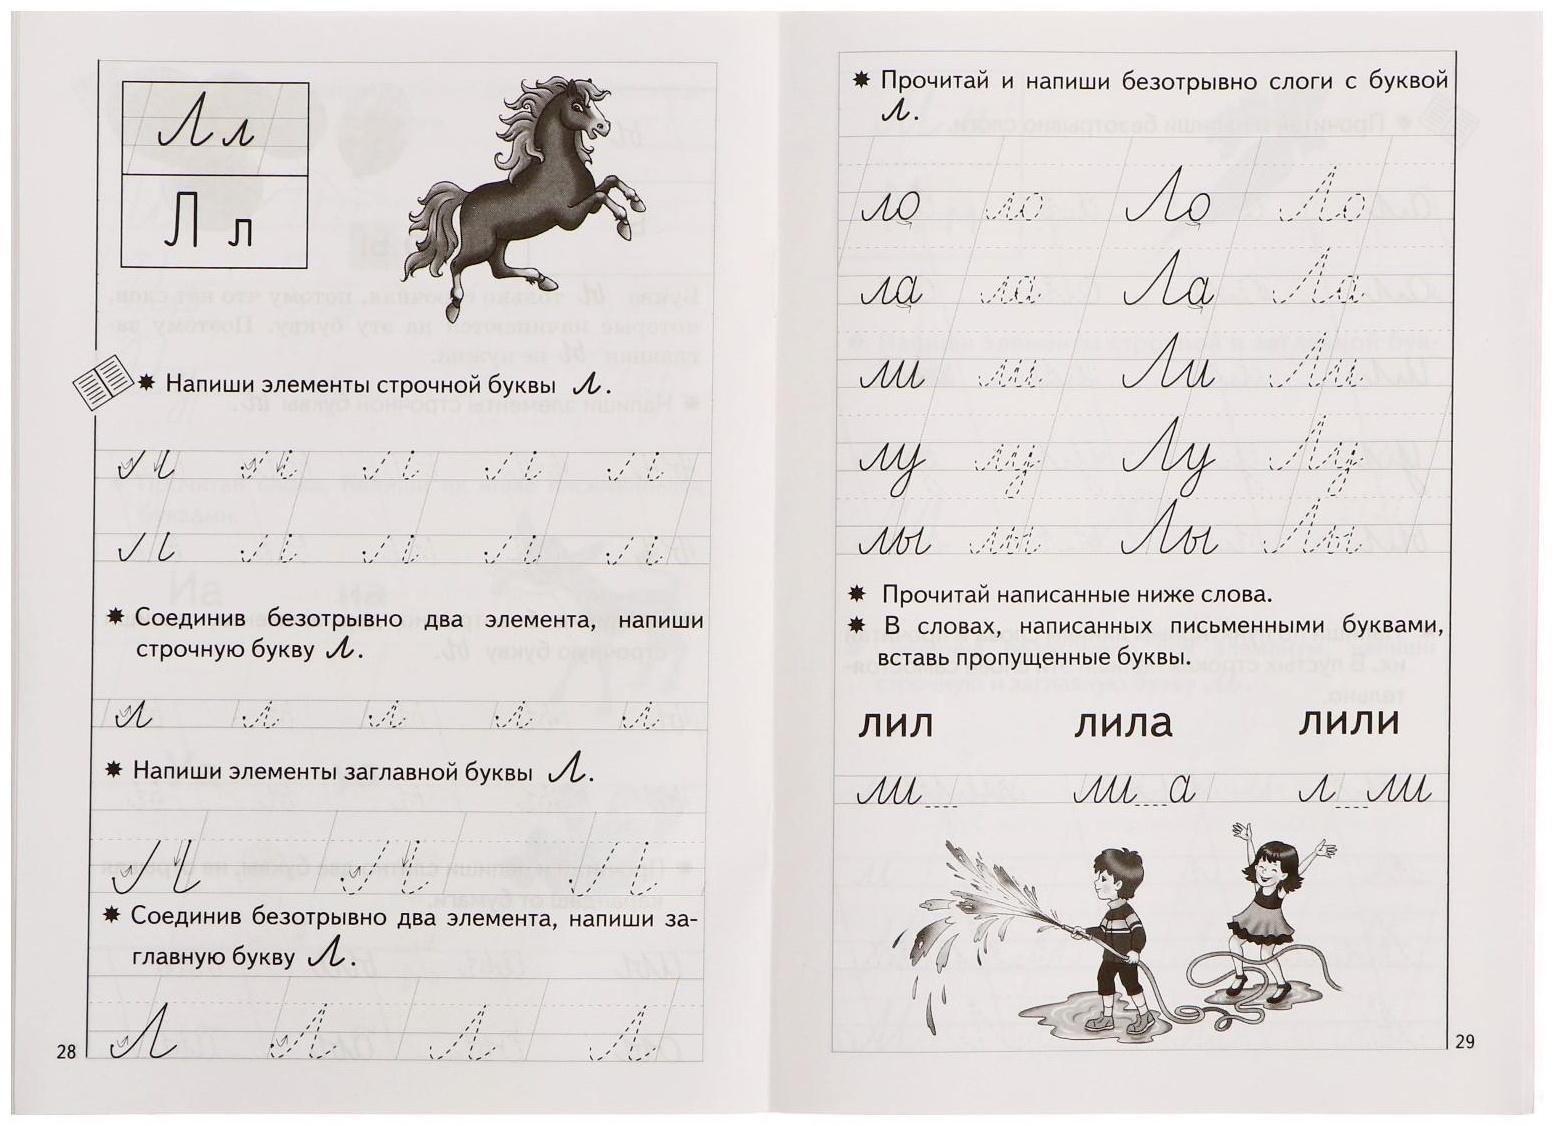 Л л
Л л
✷ Напиши элементы строчной буквы Л.
✷ Соединив безотрывно два элемента, напиши
строчную букву Л.
л л л л л
✷ Напиши элементы заглавной буквы Л.
✷ Соединив безотрывно два элемента, напиши за-
главную букву Л.
Л Л Л Л
28
✷ Прочитай и напиши безотрывно слоги с буквой
Л.
ло ло Ло Ло
ла ла Ла Ла
ли ли Ли Ли
лу лу Лу Лу
лы лы Лы Лы
✷ Прочитай написанные ниже слова.
✷ В словах, написанных письменными буквами,
вставь пропущенные буквы.
лил лила лили
ли__ ли__а л__ли
29